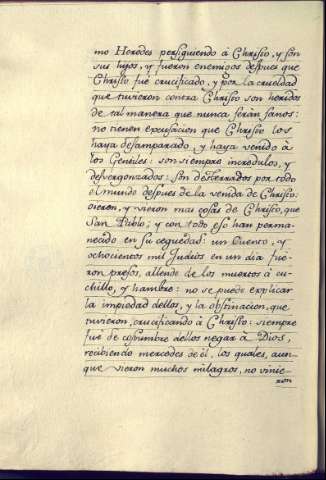 mo Herodes persiguiendo â Christo, y son
sus hijos, y fueron enemigos despues que
Christo fué crucificado, y por la crueldad
que tuvieron contra Christo son heridos
de tal manera que nunca seràn sanos:
no tienen excusacion que Christo los
haya desamparado, y haya venido â
los Gentiles: son siempre incredulos, y
desvergonzados: son desterrados por todo
el mundo despues de la venida de Christo:
oieron, y vieron mas cosas de Christo, que
San Pablo; y con todo eso han perma-
necido en su ceguedad: un Cuento, y
ochocientos mil Judios en un dia fue-
ron presos, allende de los muertos â cu-
chillo, y hambre: no se puede explicar
la impiedad dellos, y la obstinacion, que
tuvieron, crucificando â Christo: siempre
fué de costumbre dellos negar â Dios,
recibiendo mercedes de él, los quales, aun-
que vieron muchos milagros, no vinie-
ron